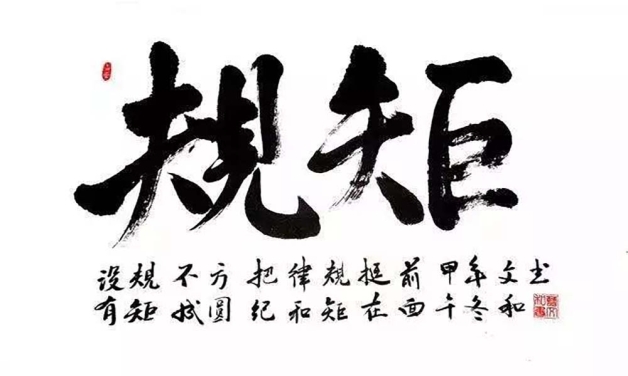 規矩
没有
規矩
不成
方圓
把纪
律和
規矩
挺在
前面
甲午
年冬
文和
书